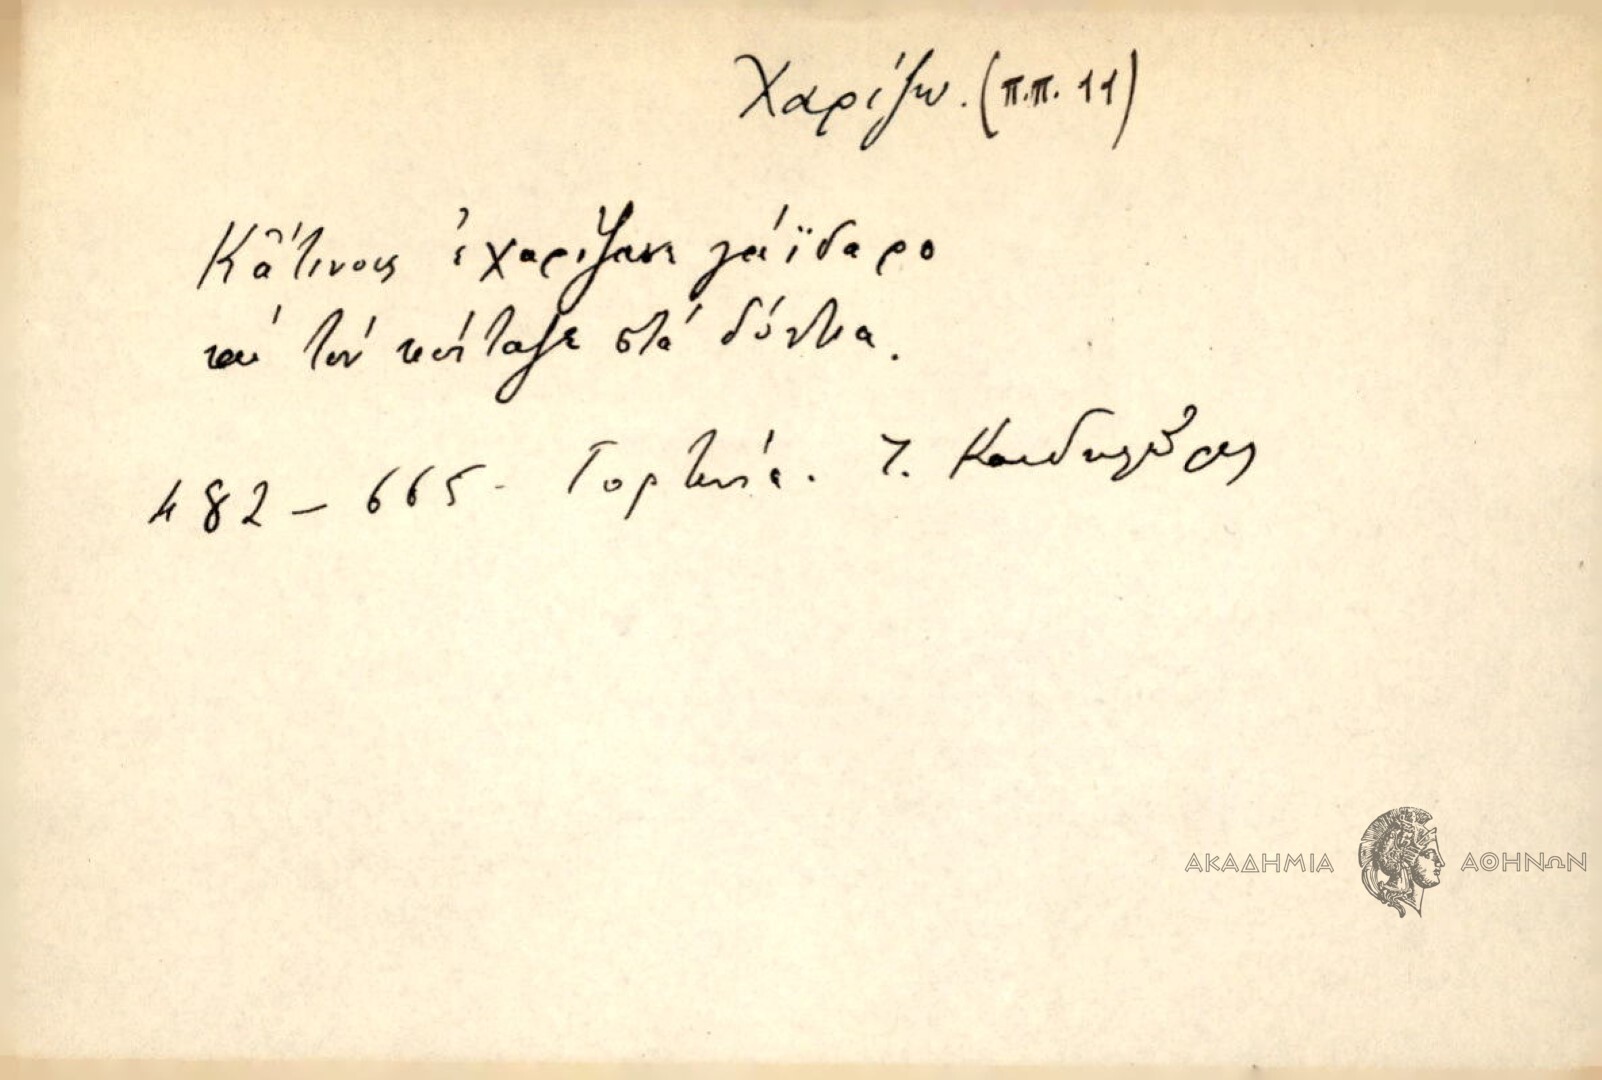 Χαρίζω. (π.π. 11)
Κάτινους ἐχαρίζανε γάϊδαρο
καί τόν κύταζε στά δόντια.
482 - 665 - Γορτυνία. Ι. Κανδηλώρος
ΑΚΑΔΗΜΙΑ ΑΘΗΝΩΝ